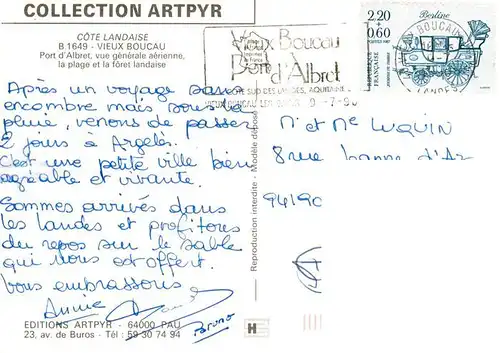 COLLECTION ARTPYR
CÔTE LANDAISE
B.1649 - VIEUX BOUCAU
Port d'Albret, vue générale aérienne,
la plage et la forêt landaise
Vieux Boucau
Port d'Albret
SUD DES LANDES, AQUITAINE
9-7-90
2,20
+0,60
Berline
RÉPUBLIQUE FRANÇAISE
Après un voyage sans
encombre mais sous la
pluie, venons de passer
2 jours à Argelès.
C'est une petite ville bien
agréable et vivante.
Sommes arrivés dans
les landes et profitons
du repos sur le sable
qui nous est offert.
Vous embrassons
Annie
Bruno
Reproduction interdite - Modèle déposé
M et Me LUQUIN
8 rue Jeanne d'Arc
94190
EDITIONS ARTPYR - 64000 PAU
23, av. de Buros - Tél : 59 30 74 94